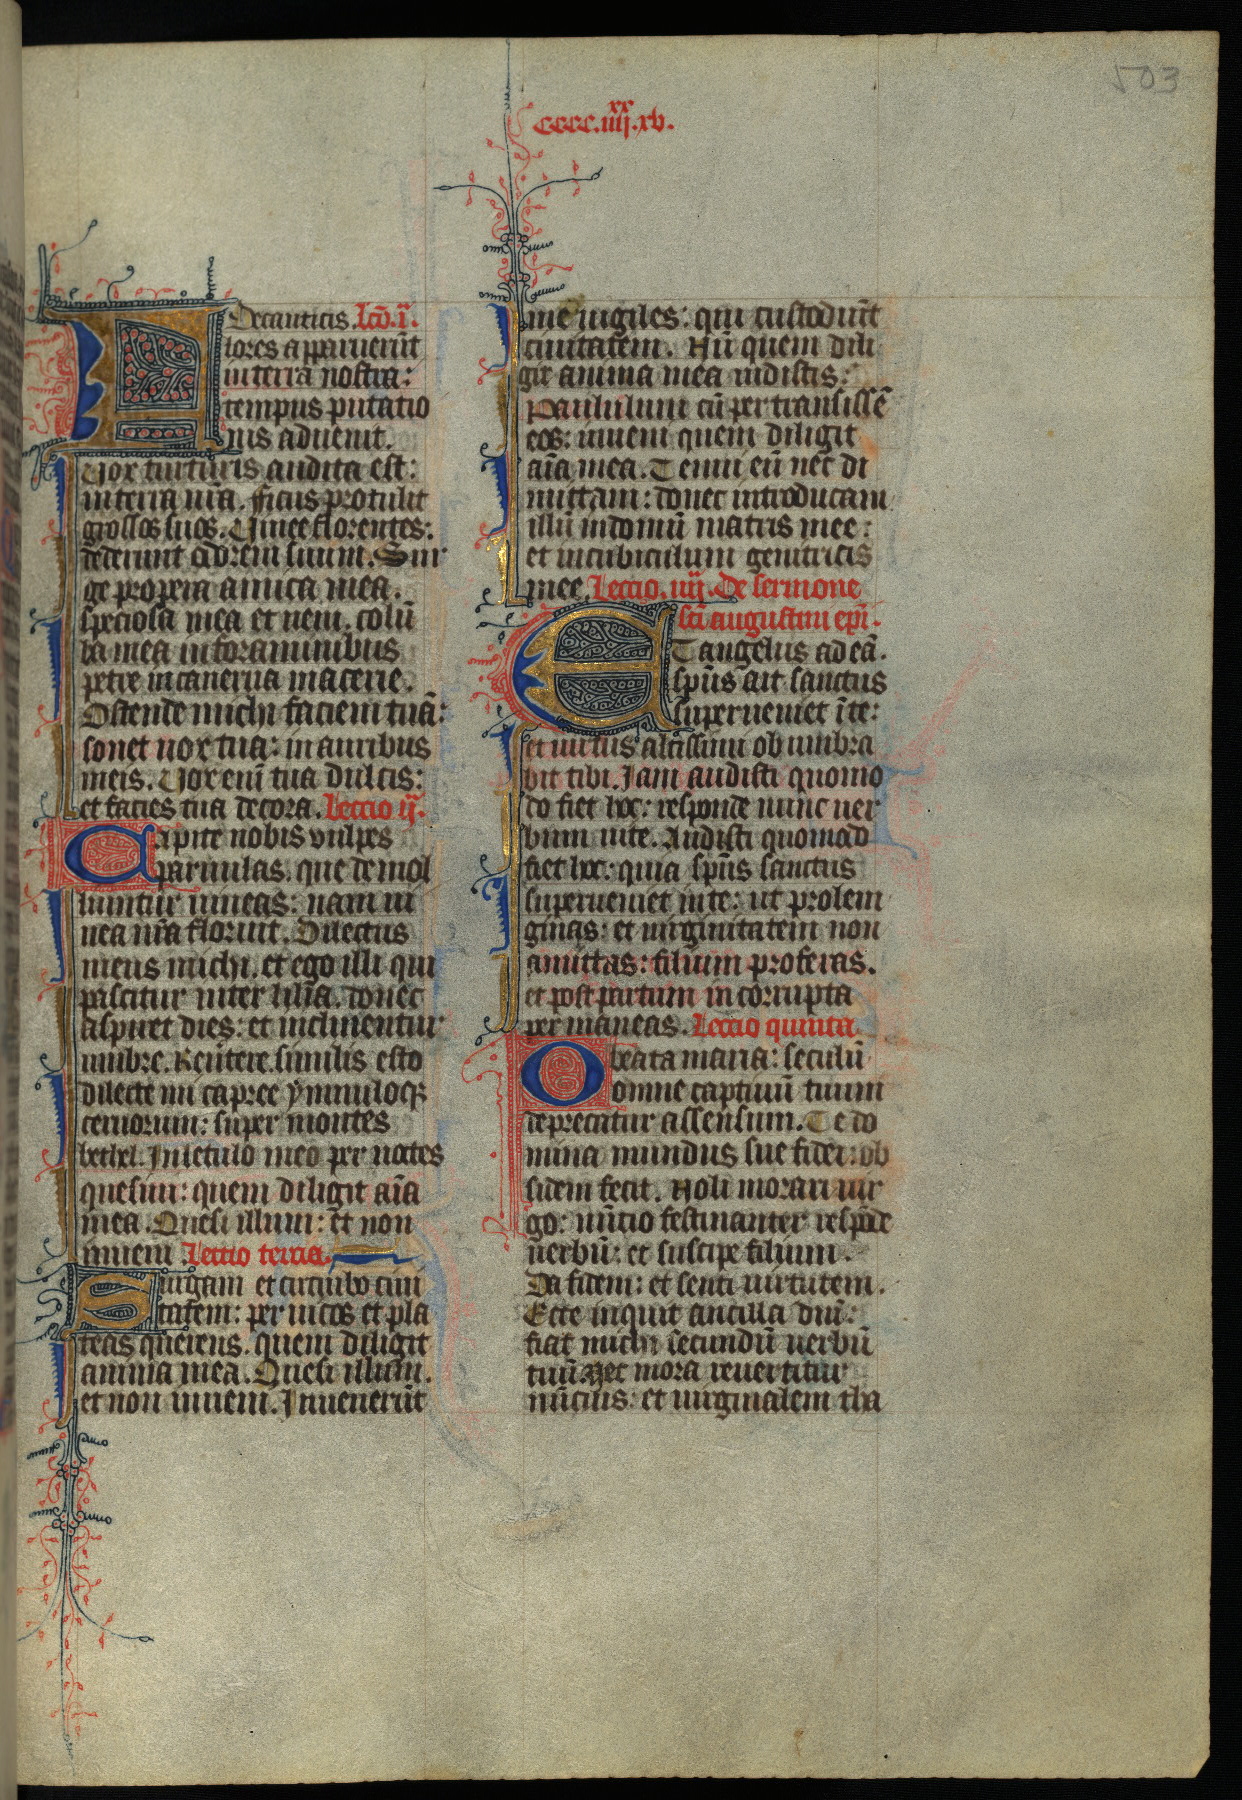 503
cccc.iiij.xx xv.
De canticis. Lcō. i.
Flores apparuerūt
in terra nostra:
tempus putatio
nis aduenit.
Vox turturis audita est:
in terra nr̄a. ficus protulit
grossos suos. Vinee florentes:
dederunt odorem suum. Sur
ge propera amica mea.
speciosa mea et ueni. colū
ba mea in foraminibus
petre in cauerna macerie.
Ostende michi faciem tuā:
sonet uox tua: in auribus
meis. Vox enī tua dulcis:
et facies tua decora. Lectio ij.
Capite nobis vulpes
paruulas. que demol
liuntur uineas: nam ui
nea nr̄a floruit. Dilectus
meus michi. et ego illi qui
pascitur inter lilia. donec
aspiret dies: et inclinentur
umbre. Reūtere similis esto
dilecte mi capree ymnuloqꝫ
ceruorum: super montes
bethel. In lectulo meo per noctes
quesiui: quem diligit aīa
mea. Quesi illum: et non
inueni. Lectio tercia.
Surgam et circuibo ciui
tatem: per uicos et pla
teas querens. quem diligit
anima mea. Quesi illum.
et non inueni. Inuenerūt
me uigiles: qui custodiūt
ciuitatem. Nū quem dili
git anima mea uidistis:
Paululum cū pertransissē
eos: inueni quem diligit
aīa mea. Tenui eū nec di
mittam: donec introducam
illū in domū matris mee:
et in cubiculum genitricis
mee. Lectio. iiij. De sermone
scī augustini ep̄i.
Et angelus ad eā.
sp̄us ait sanctus
superueniet ī te:
et uirtus altissimi obumbra
bit tibi. Iam audisti quomo
do fiet hoc: responde nunc uer
bum uite. Audisti quomod
fiet hoc: quia sp̄us sanctus
superueniet in te: ut prolem
gignas: et uirginitatem non
amittas: filium proferas.
et post partum incorrupta
permaneas. Lectio quinta.
O beata maria: seculū
omne captiuū tuum
deprecatur assensum. Te do
mina mundus sue fidei: ob
sidem fecit. Noli morari uir
go: nūcio festinanter respōde
uerbū: et suscipe filium.
Da fidem: et senti uirtutem.
Ecce inquit ancilla dnī:
fiat michi secundū uerbū
tuū. Nec mora reuertitur
nūcius: et uirginalem tha